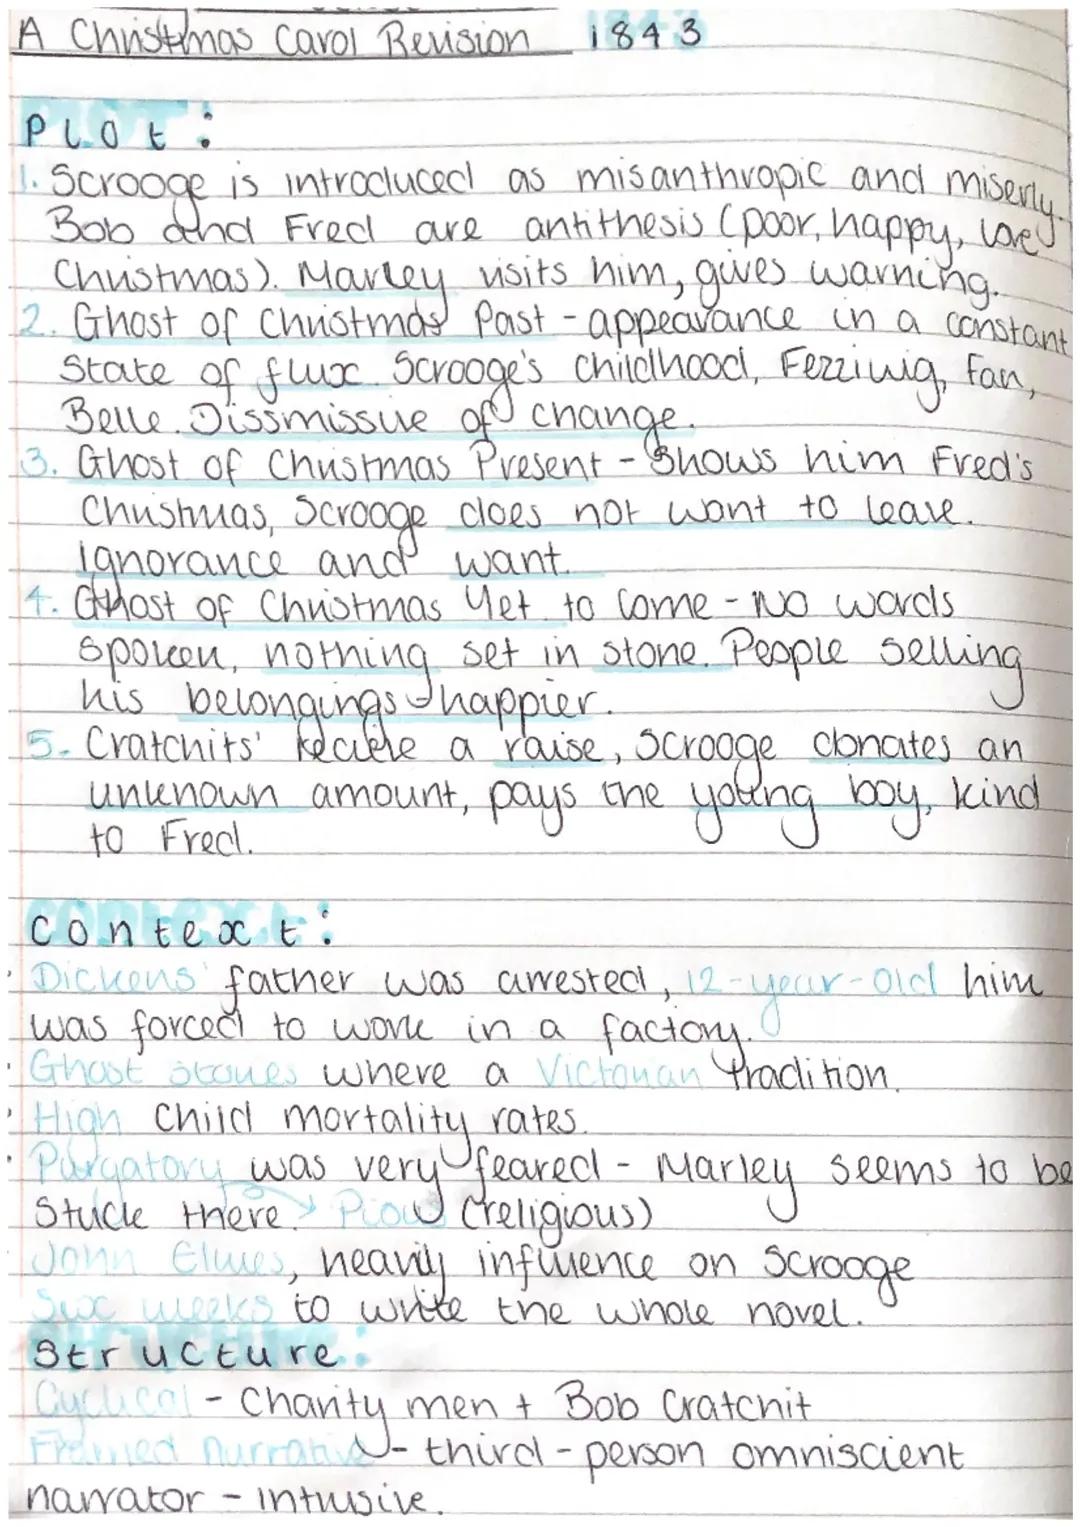 A Christmas Carol Revision 1843
Plot:
1. Scrooge is introduced as misanthropic and miserly.
Bob and Fred are antithesis (poor, happy, love
Christmas). Marley visits him, gives warning.
2. Ghost of Christmas Past - appearance in a constant
state of flux. Scrooge's childhood, Fezziwig, Fan,
Belle. Dissmissive of change.
3. Ghost of Christmas Present - Shows him Fred's
Christmas, Scrooge does not want to leave.
Ignorance and want.
4. Ghost of Christmas Yet to Come - No words
spoken, nothing set in stone. People selling
his belongings - happier.
5. Cratchits' recieve a raise, Scrooge donates an
unknown amount, pays the young boy, kind
to Fred.
Context:
· Dickens' father was arrested, 12-year-old him
was forced to work in a factory.
· Ghost stories where a Victorian tradition.
· High child mortality rates.
· Purgatory was very feared - Marley seems to be
stuck there. → Pious (religious)
· John Elwes, heavily influence on Scrooge
Six weeks to write the whole novel.
Structure:
Cyclical - Charity men + Bob Cratchit
Framed narrative - third-person omniscient
narrator - intrusive.